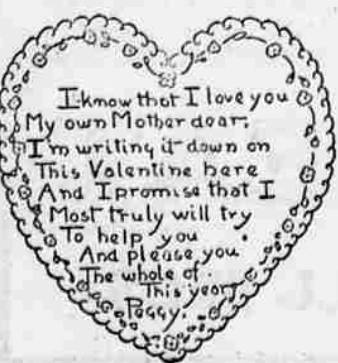 I know that I love you
My own Mother dear,
I'm writing it down on
This Valentine here
And I promise that I
Most truly will try
To help you
And please you
The whole of
This year,
Peggy.